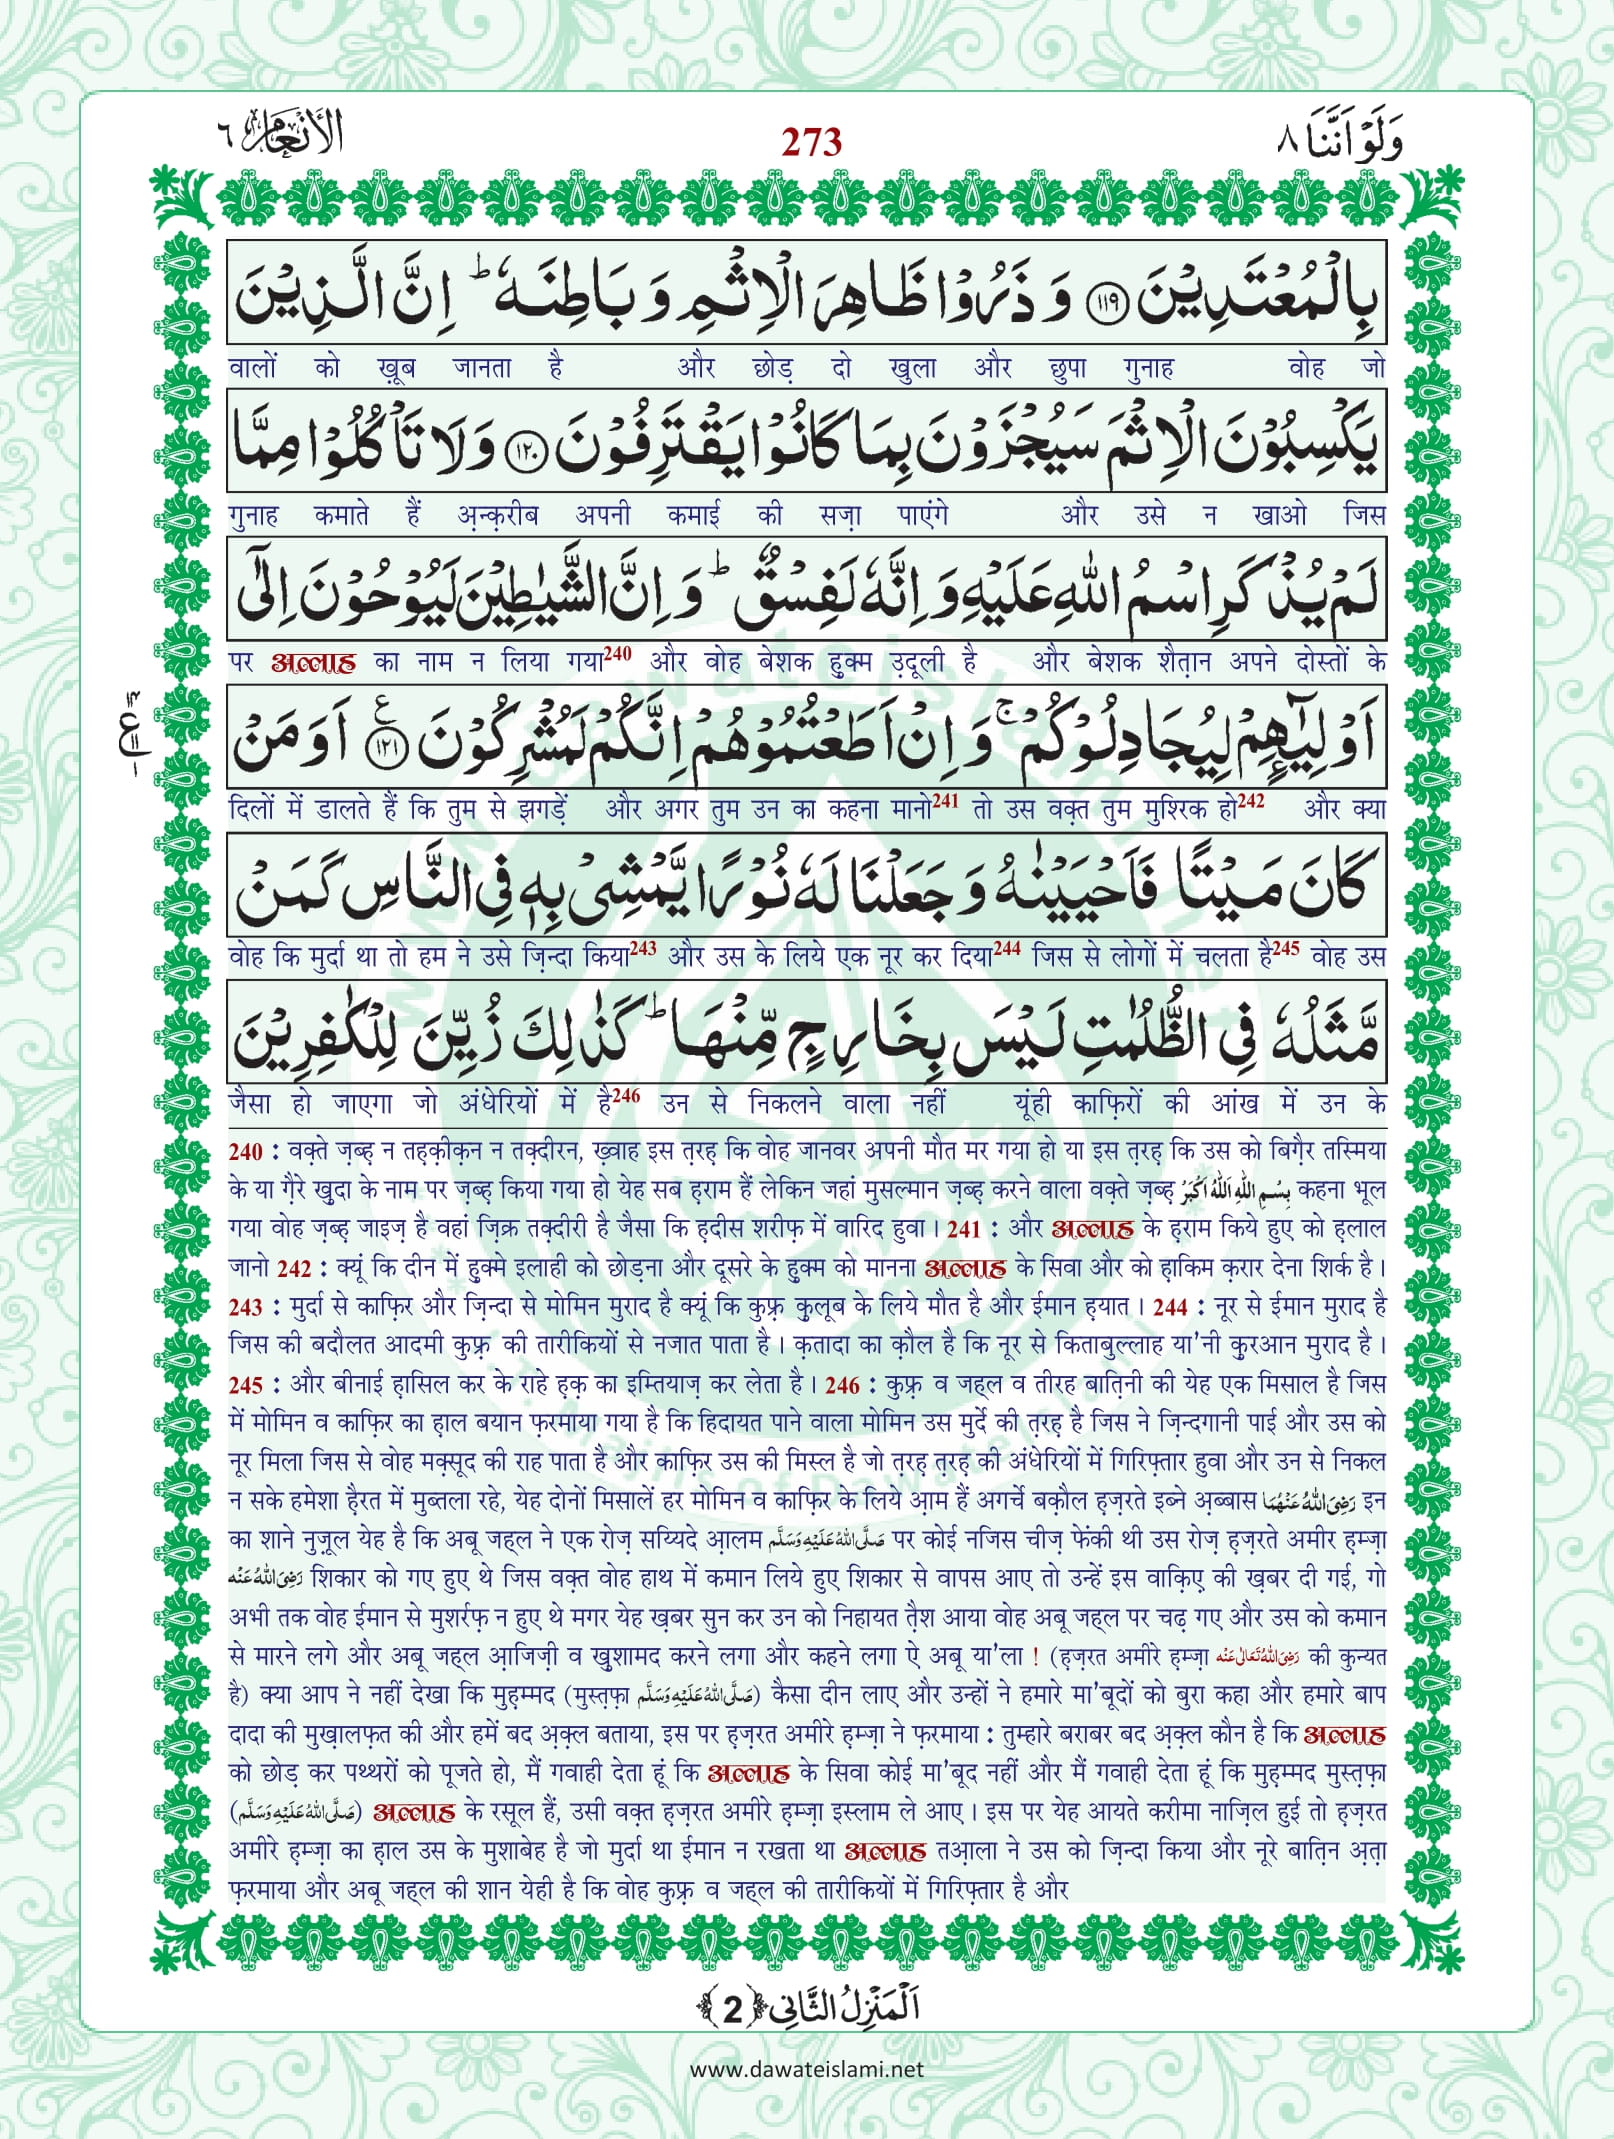 وَلَوْ اَنَّنَا ٨
273
الْاَنْعَام ٦
بِالْمُعْتَدِیْنَ ﴿۱۱۹﴾ وَ ذَرُوْا ظَاهِرَ الْاِثْمِ وَ بَاطِنَهٗ ؕ اِنَّ الَّذِیْنَ
वालों को ख़ूब जानता है और छोड़ दो खुला और छुपा गुनाह वोह जो
یَكْسِبُوْنَ الْاِثْمَ سَیُجْزَوْنَ بِمَا كَانُوْا یَقْتَرِفُوْنَ ﴿۱۲۰﴾ وَ لَا تَاْكُلُوْا مِمَّا
गुनाह कमाते हैं अ़न्क़रीब अपनी कमाई की सज़ा पाएंगे और उसे न खाओ जिस
لَمْ یُذْكَرِ اسْمُ اللّٰهِ عَلَیْهِ وَ اِنَّهٗ لَفِسْقٌ ؕ وَ اِنَّ الشَّیٰطِیْنَ لَیُوْحُوْنَ اِلٰۤى
पर अल्लाह का नाम न लिया गया240 और वोह बेशक हुक्म उ़दूली है और बेशक शैत़ान अपने दोस्तों के
اَوْلِیٰٓـٕهِمْ لِیُجَادِلُوْكُمْ ۚ وَ اِنْ اَطَعْتُمُوْهُمْ اِنَّكُمْ لَمُشْرِكُوْنَ ﴿۱۲۱﴾ ع اَوَ مَنْ
दिलों में डालते हैं कि तुम से झगड़ें और अगर तुम उन का कहना मानो241 तो उस वक़्त तुम मुश्रिक हो242 और क्या
كَانَ مَیْتًا فَاَحْیَیْنٰهُ وَ جَعَلْنَا لَهٗ نُوْرًا یَّمْشِیْ بِهٖ فِی النَّاسِ كَمَنْ
वोह कि मुर्दा था तो हम ने उसे ज़िन्दा किया243 और उस के लिये एक नूर कर दिया244 जिस से लोगों में चलता है245 वोह उस
مَّثَلُهٗ فِی الظُّلُمٰتِ لَیْسَ بِخَارِجٍ مِّنْهَا ؕ كَذٰلِكَ زُیِّنَ لِلْكٰفِرِیْنَ
जैसा हो जाएगा जो अंधेरियों में है246 उन से निकलने वाला नहीं यूंही काफ़िरों की आंख में उन के
240 : वक़्ते ज़ब्ह़ न तह़क़ीक़न न तक़्दीरन, ख़्वाह इस त़रह़ कि वोह जानवर अपनी मौत मर गया हो या इस त़रह़ कि उस को बिग़ैर तस्मिया
के या ग़ैरे ख़ुदा के नाम पर ज़ब्ह़ किया गया हो येह सब ह़राम हैं लेकिन जहां मुसल्मान ज़ब्ह़ करने वाला वक़्ते ज़ब्ह़ بِسْمِ اللّٰهِ اَللّٰهُ اَكْبَرُ कहना भूल
गया वोह ज़ब्ह़ जाइज़ है वहां ज़िक्र तक़्दीरी है जैसा कि ह़दीस शरीफ़ में वारिद हुवा। 241 : और अल्लाह के ह़राम किये हुए को ह़लाल
जानो 242 : क्यूं कि दीन में हुक्मे इलाही को छोड़ना और दूसरे के हुक्म को मानना अल्लाह के सिवा और को ह़ाकिम क़रार देना शिर्क है।
243 : मुर्दा से काफ़िर और ज़िन्दा से मोमिन मुराद है क्यूं कि कुफ़्र क़ुलूब के लिये मौत है और ईमान ह़यात। 244 : नूर से ईमान मुराद है
जिस की बदौलत आदमी कुफ़्र की तारीकियों से नजात पाता है। क़तादा का क़ौल है कि नूर से किताबुल्लाह या'नी क़ुरआन मुराद है।
245 : और बीनाई ह़ासिल कर के राहे ह़क़ का इम्तियाज़ कर लेता है। 246 : कुफ़्र व जह्ल व तीरह बात़िनी की येह एक मिसाल है जिस
में मोमिन व काफ़िर का ह़ाल बयान फ़रमाया गया है कि हिदायत पाने वाला मोमिन उस मुर्दे की त़रह़ है जिस ने ज़िन्दगानी पाई और उस को
नूर मिला जिस से वोह मक़्सूद की राह पाता है और काफ़िर उस की मिस्ल है जो त़रह़ त़रह़ की अंधेरियों में गिरिफ़्तार हुवा और उन से निकल
न सके हमेशा ह़ैरत में मुब्तला रहे, येह दोनों मिसालें हर मोमिन व काफ़िर के लिये आ़म हैं अगर्चे बक़ौल ह़ज़रते इब्ने अ़ब्बास رَضِیَ اللّٰهُ عَنْهُمَا इन
का शाने नुज़ूल येह है कि अबू जह्ल ने एक रोज़ सय्यिदे आ़लम صَلَّى اللّٰهُ عَلَیْهِ وَسَلَّم पर कोई नजिस चीज़ फेंकी थी उस रोज़ ह़ज़रते अमीर ह़म्ज़ा
رَضِیَ اللّٰهُ عَنْه शिकार को गए हुए थे जिस वक़्त वोह हाथ में कमान लिये हुए शिकार से वापस आए तो उन्हें इस वाक़िए की ख़बर दी गई, गो
अभी तक वोह ईमान से मुशर्रफ़ न हुए थे मगर येह ख़बर सुन कर उन को निहायत त़ैश आया वोह अबू जह्ल पर चढ़ गए और उस को कमान
से मारने लगे और अबू जह्ल आ़जिज़ी व ख़ुशामद करने लगा और कहने लगा ऐ अबू या'ला ! (ह़ज़रत अमीरे ह़म्ज़ा رَضِیَ اللّٰهُ تَعَالٰی عَنْه की कुन्यत
है) क्या आप ने नहीं देखा कि मुह़म्मद (मुस्त़फ़ा صَلَّى اللّٰهُ عَلَیْهِ وَسَلَّم) कैसा दीन लाए और उन्हों ने हमारे मा'बूदों को बुरा कहा और हमारे बाप
दादा की मुख़ालफ़त की और हमें बद अ़क़्ल बताया, इस पर ह़ज़रत अमीरे ह़म्ज़ा ने फ़रमाया : तुम्हारे बराबर बद अ़क़्ल कौन है कि अल्लाह
को छोड़ कर पथ्थरों को पूजते हो, मैं गवाही देता हूं कि अल्लाह के सिवा कोई मा'बूद नहीं और मैं गवाही देता हूं कि मुह़म्मद मुस्त़फ़ा
(صَلَّى اللّٰهُ عَلَیْهِ وَسَلَّم) अल्लाह के रसूल हैं, उसी वक़्त ह़ज़रत अमीरे ह़म्ज़ा इस्लाम ले आए। इस पर येह आयते करीमा नाज़िल हुई तो ह़ज़रत
अमीरे ह़म्ज़ा का ह़ाल उस के मुशाबेह है जो मुर्दा था ईमान न रखता था अल्लाह तआ़ला ने उस को ज़िन्दा किया और नूरे बात़िन अ़त़ा
फ़रमाया और अबू जह्ल की शान येही है कि वोह कुफ़्र व जह्ल की तारीकियों में गिरिफ़्तार है और
اَلْمَنْزِلُ الثَّانِی ﴿2﴾
www.dawateislami.net